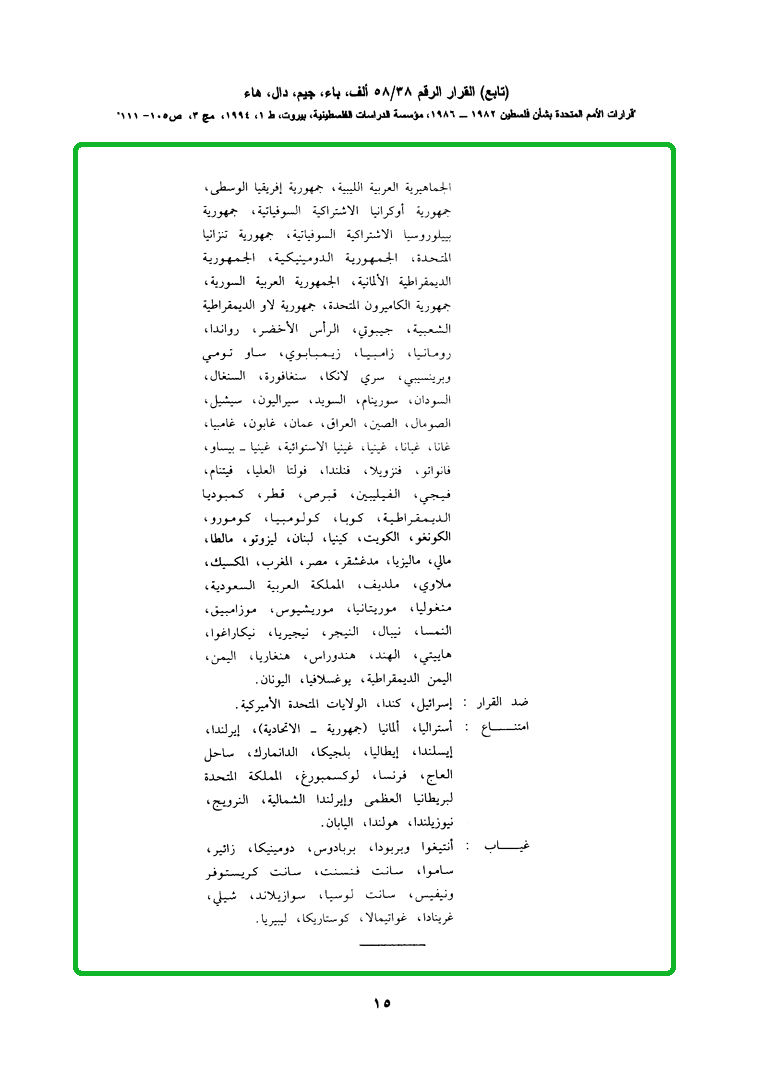 (تابع) القرار الرقم ٥٨/٣٨ ألف، باء، جيم، دال، هاء
"قرارات الأمم المتحدة بشأن فلسطين ١٩٨٢ ــ ١٩٨٦، مؤسسة الدراسات الفلسطينية، بيروت، ط ١، ١٩٩٤، مج ٣، ص١٠٥- ١١١"
الجماهيرية العربية الليبية، جمهورية إفريقيا الوسطى،
جمهورية أوكرانيا الاشتراكية السوفياتية، جمهورية
بييلوروسيا الاشتراكية السوفياتية، جمهورية تنزانيا
المتحدة، الجمهورية الدومينيكية، الجمهورية
الديمقراطية الألمانية، الجمهورية العربية السورية،
جمهورية الكاميرون المتحدة، جمهورية لاو الديمقراطية
الشعبية، جيبوتي، الرأس الأخضر، رواندا،
رومانيا، زامبيا، زيمبابوي، ساو تومي
وبرينسيبي، سري لانكا، سنغافورة، السنغال،
السودان، سورينام، السويد، سيراليون، سيشيل،
الصومال، الصين، العراق، عمان، غابون، غامبيا،
غانا، غيانا، غينيا، غينيا الاستوائية، غينيا ـ بيساو،
فانواتو، فنزويلا، فنلندا، فولتا العليا، فيتنام،
فيجي، الفيليبين، قبرص، قطر، كمبوديا
الديمقراطية، كوبا، كولومبيا، كومورو،
الكونغو، الكويت، كينيا، لبنان، ليزوتو، مالطا،
مالي، ماليزيا، مدغشقر، مصر، المغرب، المكسيك،
ملاوي، ملديف، المملكة العربية السعودية،
منغوليا، موريتانيا، موريشيوس، موزامبيق،
النمسا، نيبال، النيجر، نيجيريا، نيكاراغوا،
هاييتي، الهند، هندوراس، هنغاريا، اليمن،
اليمن الديمقراطية، يوغسلافيا، اليونان.
ضد القرار : إسرائيل، كندا، الولايات المتحدة الأميركية.
امتنــــاع : أستراليا، ألمانيا (جمهورية ـ الاتحادية)، إيرلندا،
إيسلندا، إيطاليا، بلجيكا، الدانمارك، ساحل
العاج، فرنسا، لوكسمبورغ، المملكة المتحدة
لبريطانيا العظمى وإيرلندا الشمالية، النرويج،
نيوزيلندا، هولندا، اليابان.
غيــــاب : أنتيغوا وبربودا، بربادوس، دومينيكا، زائير،
ساموا، سانت فنسنت، سانت كريستوفر
ونيفيس، سانت لوسيا، سوازيلاند، شيلي،
غرينادا، غواتيمالا، كوستاريكا، ليبيريا.
١٥